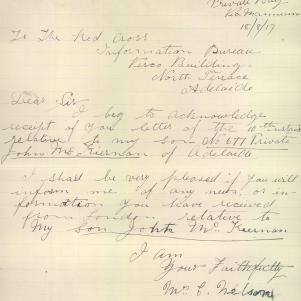 Private Bag
Via Mannum
18/9/17
To The Red Cross
Information Bureau
Verco Building
North Terrace
Adelaide
Dear Sir
I beg to acknowledge
receipt of you letter of the 10th instant
relative to my son No 677 Private
John Mc Kiernan of Adelaide
I shall be very pleased if you will
inform me of any news or in-
formation you have received
from London relative to
My son John Mc Kiernan
I am
Your Faithfully
Mrs C. Nelson